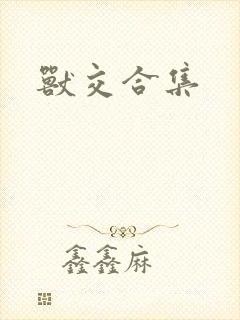 獸交合集
鑫鑫麻